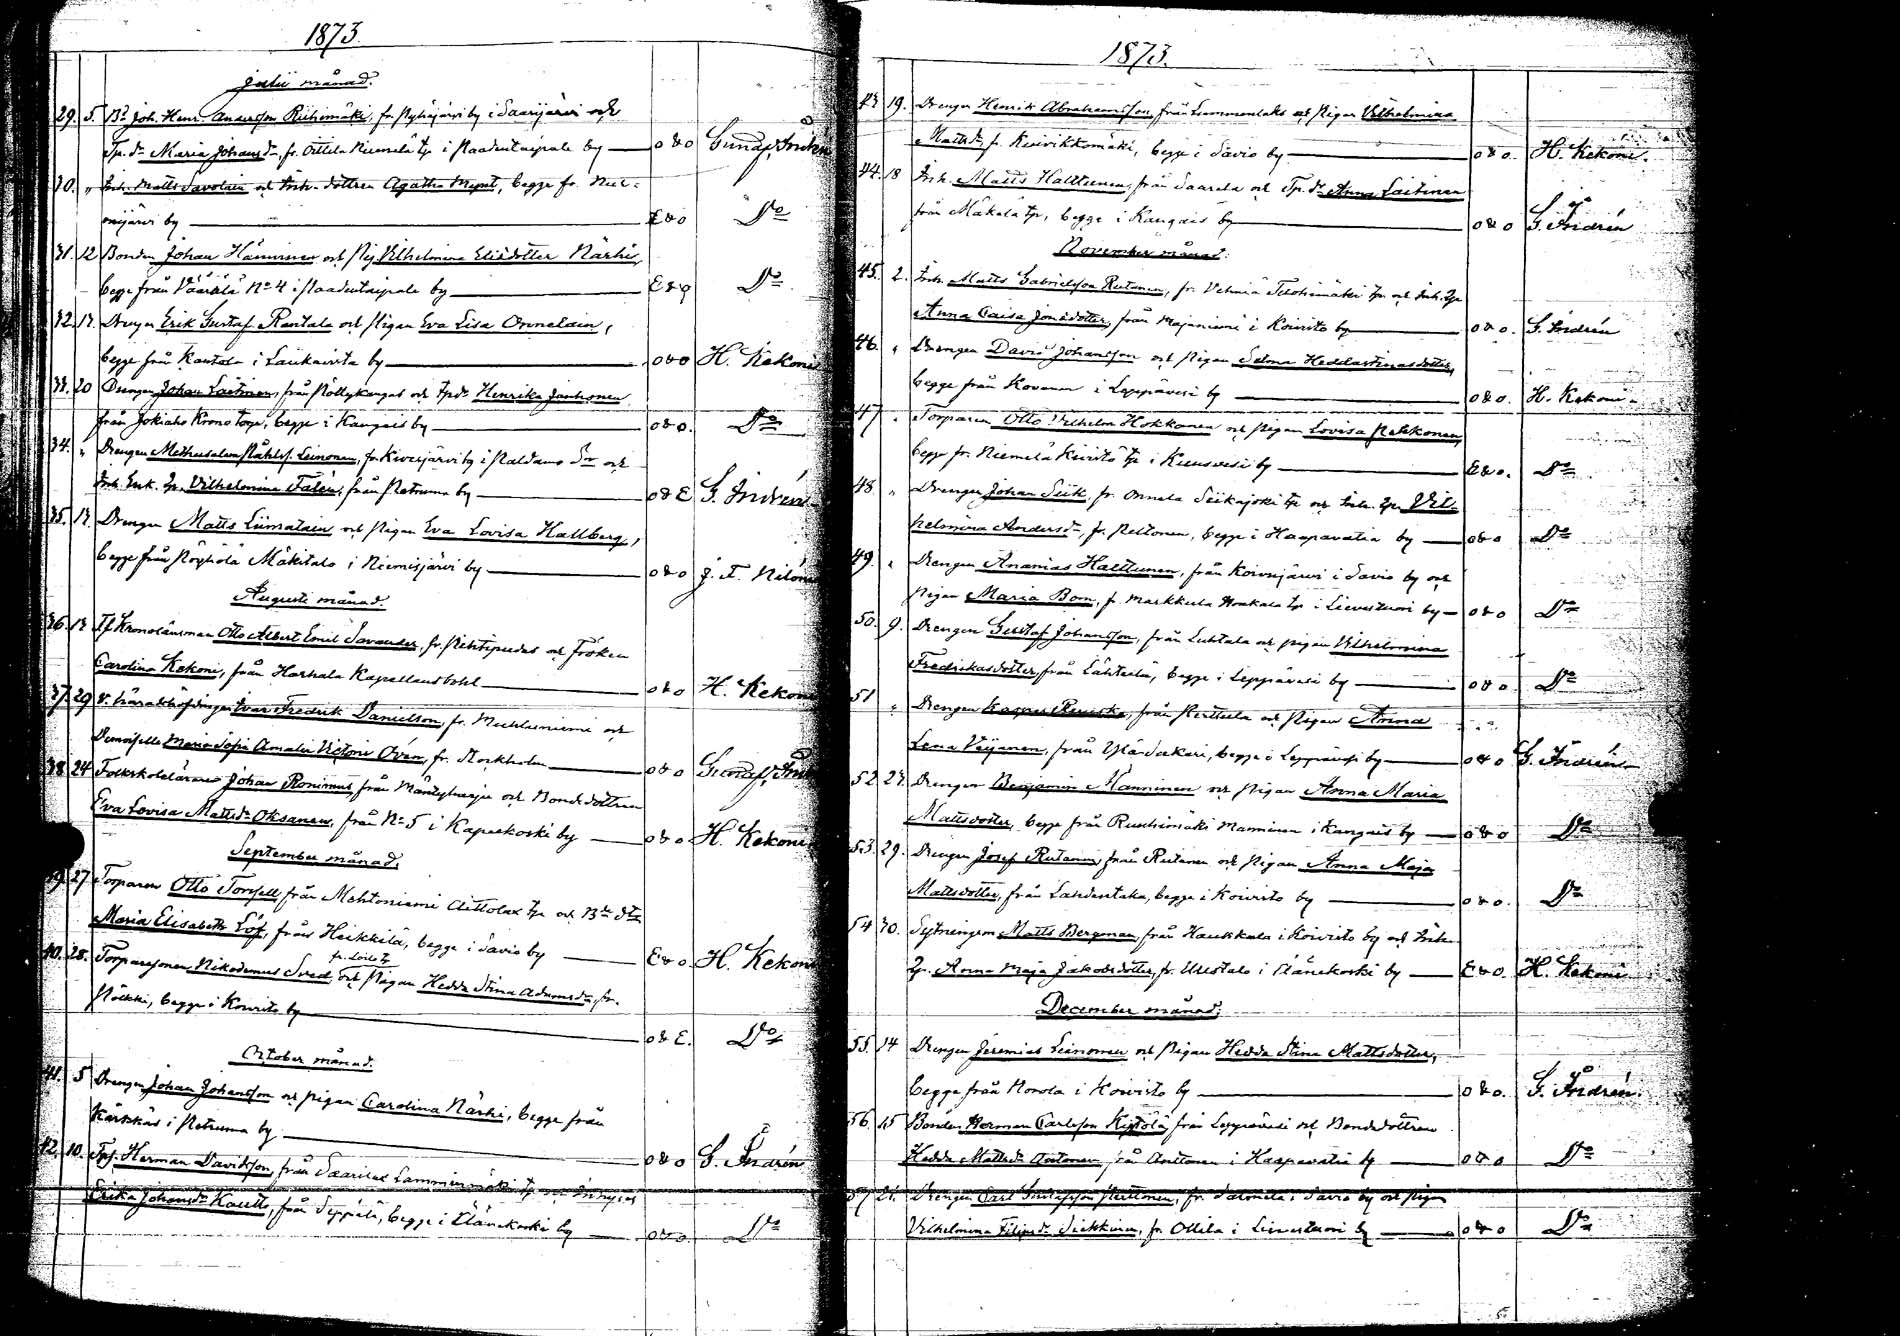 1873.
Julii månad.
29. 5. Bd Joh. Henr. Andersson Riihimäki, fr. Pyhäjärvi by i Saarijärvi och
Tp. dr Maria Johansdr, fr. Ottila Niemelä tp i Raadentaipale by — o & o Gustaf
30. " Inh. Matts Savolain och Inh. dottren Agatha, begge fr. Nie-
misjärvi by — E & o Do
31. 12 Bonden Johan Hänninen och Pig. Vilhelmina Elisdotter Närhi,
begge från Väärälä No 4 i Raadentaipale by — E & o Do
32. 13. Drengen Erik Gustaf Rantala och Pigan Eva Lisa Onnelain,
begge från Rantala i Laukavirta by — o & o H. Kekoni
33. 20 Drengen Johan Laitinen, från Pöllykangas och Tpdr Henrika Janhonen
från Jokiaho Kronotorp, begge i Kangais by — o & o. Do
34. " Drengen Methusalem Leinonen, fr. Kivesjärvi by i Paldamo Sn och
Inh. Enk. Tp. Vilhelmina Falén, från Petruma by — o & E G. Indrén
35. 13. Drengen Matts Liimatain och Pigan Eva Lovisa Hallberg,
begge från Pöyhölä Mäkitalo i Niemisjärvi by — o & o J. F. Nilóni
Augusti månad.
36. 13 Tf Kronolänsman Otto Albert Emil Savander, fr. och Fröken
Carolina Kekoni, från Hankala Kapellansbohl — o & o H. Kekoni
37. 29 v. häradshöfdingen Ivar Fredrik Danielson, fr. och
Demoiselle Maria Sofia Amalia Victoria Ovén, fr. Stockholm — o & o Gustaf
38 24 Folkskoleläraren Johan Ronimus från Mäntyharju och Bondedottren
Eva Lovisa Mattsdr Oksanen, från No 5 i Kapeekoski by — o & o H. Kekoni
September månad.
39. 27 Torparen Otto Torssell, från Mahtoniemi Aittolax tp och
Maria Elisabeth Löf, från Heikkilä, begge i Savio by — E & o. H. Kekoni
40. 28. Torparesonen Nikodemus Sved, och Pigan Hedda Stina Adamsdr, fr.
begge i Koivisto by — o & E. Do
October månad.
41. 5 Drengen Johan Johansson och pigan Carolina Närhi, begge från
Kärkkäs i Petruma by — o & o G. Indrén
42. 10. Tps. Herman Davidsson, från Lamminmäki tp och
Erika Johansdr Kautto, från Seppälä, begge i Äänekoski by — o & o. Do
1873.
43 19. Drengen Henrik Abrahamsson, från Lummenlaks och Pigan Vilhelmina
Mattsdr fr. Kuivikkomäki, begge i Savio by — o & o. H. Kekoni.
44. 18 Inh. Matts Halttunen, från Saarela och Tp. dr Anna Laitinen
från Mäkelä tp, begge i Kangais by — o & o G. Indrén
November månad.
45. 2. Inh. Matts Gabrielsson Rutanen, fr. Vehniä tp och Inh. tp
Anna Caisa Jonsdotter, från Majaniemi i Koivisto by — o & o. G. Indrén
46. " Drengen David Johansson och Pigan Selma Heddastinasdotter,
begge från Kovanen i Leppävesi by — o & o. H. Kekoni.
47 " Torparen Otto Vilhelm Hokkanen och Pigan Lovisa Pekkonen,
begge fr. Niemelä Kivistö tp i Kuusvesi by — E & o. Do
48. " Drengen Johan Siik, fr. Onnela Siikajoki tp och Inh. tp Vil-
helmina Andersdr, fr. Peltonen, begge i Haapavatia by — o & o Do
49. " Drengen Ananias Halttunen, från Koivujärvi i Savio by och
pigan Maria Bom, fr. Markkula tp i Lievestuori by — o & o Do
50. 9. Drengen Gustaf Johansson, från Luhtala och pigan Vilhelmina
Fredrikasdotter, från Lähteelä, begge i Leppävesi by — o & o Do
51 " Drengen från Perttula och Pigan Anna
Lena Veijanen, från begge i Leppävesi by — o & o G. Indrén
52 23. Drengen Benjamin Manninen och Pigan Anna Maria
Mattsdotter, begge från Manninen i Kangais by — o & o Do
53. 29. Drengen Josef Rutanen, från Rutanen och Pigan Anna Maja
Mattsdotter, från begge i Koivisto by — o & o. Do
54 30. Sytningsm. Matts Bergman, från Haukkala i Koivisto by och Enk.
Tp. Anna Maja Jakobsdotter, fr. Uusitalo i Äänekoski by — E & o. H. Kekoni
December månad.
55. 14 Drengen Jeremias Leinonen och Pigan Hedda Stina Mattsdotter,
begge från Norola i Koivisto by — o & o. G. Indrén.
56. 25 Bonden Herman Carlsson från Leppävesi och Bondedottren
Hedda Mattsdr Anttonen, från Anttonen i Haapavatia by — o & o Do
57 21. Drengen Carl Gustafsson fr. Salmela i Savio by och Pigan
Vilhelmina Filipsdr Siekkinen, fr. Ollila i Lievestuori by — o & o Do